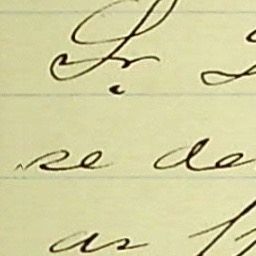 Sr.
se de
as